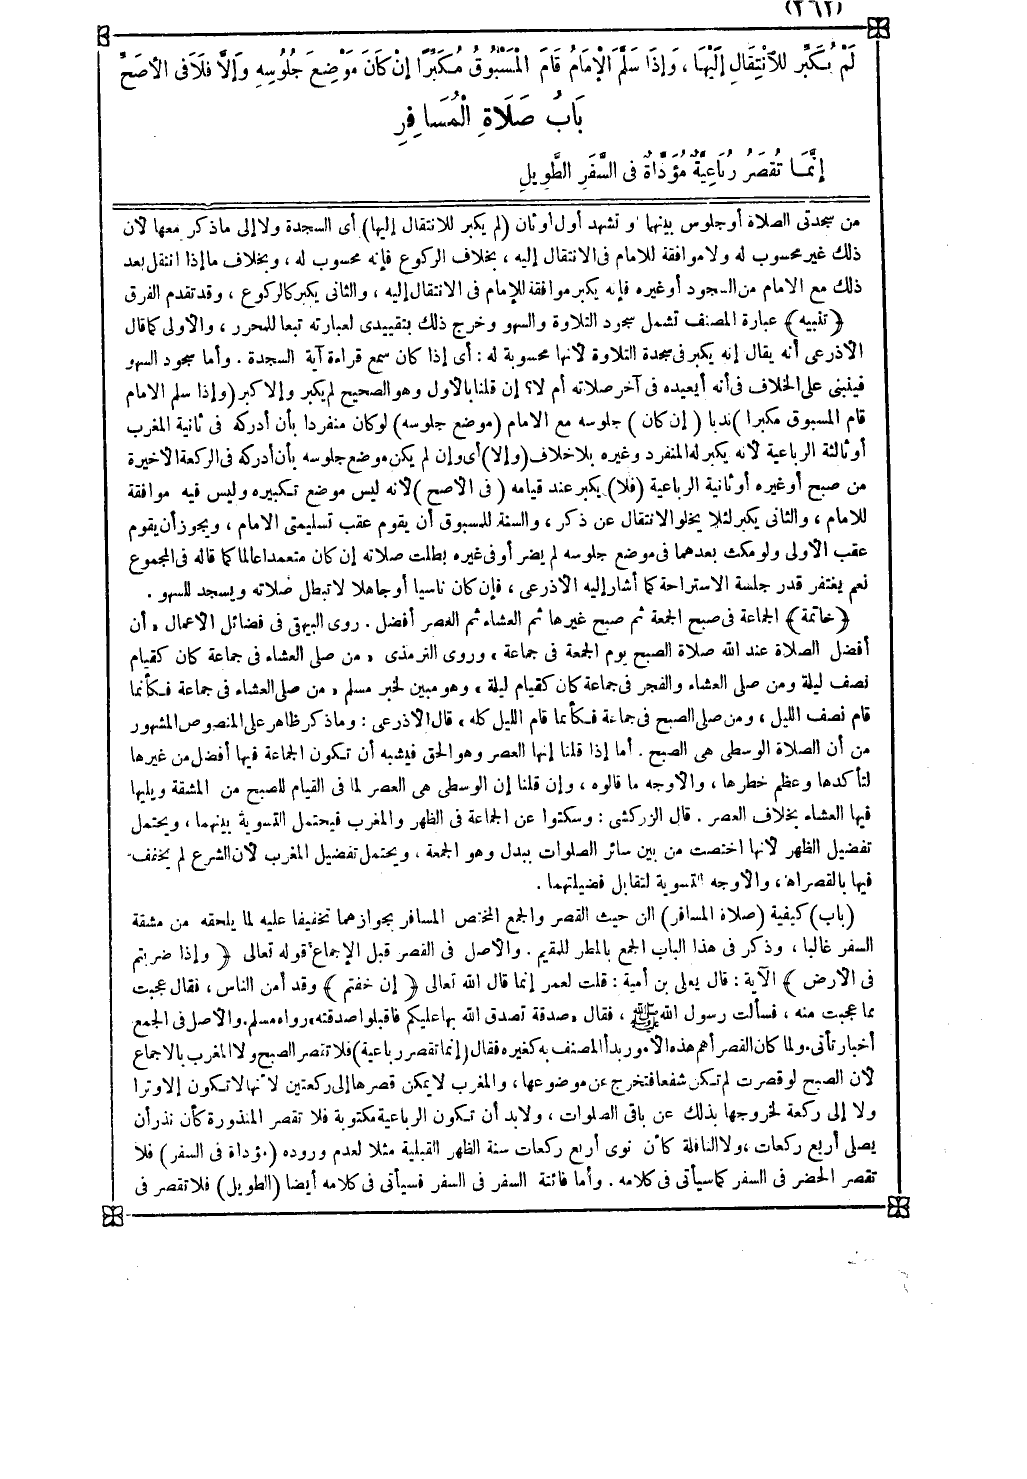 (٢٦٢)
لَمْ يُكَبِّر لِلاِنْتِقَالِ إِلَيْهَا ، وَإِذَا سَلَّمَ الإِمَامُ قَامَ الْمَسْبُوقُ مُكَبِّرًا إِنْ كَانَ مَوْضِعَ جُلُوسِهِ وَإِلَّا فَلَا فِى الأَصَحِّ
بَابُ صَلَاةِ الْمُسَافِرِ
إِنَّمَا تُقْصَرُ رُبَاعِيَّةٌ مُؤَدَّاةٌ فِى السَّفَرِ الطَّوِيلِ
من سجدتى الصلاة أو جلوس بينهما و تشهد أول أو ثان (لم يكبر للانتقال إليها) أى السجدة ولا إلى ماذكر معها لأن
ذلك غير محسوب له ولا موافقة للامام فى الانتقال إليه ، بخلاف الركوع فإنه محسوب له ، وبخلاف ما إذا انتقل بعد
ذلك مع الامام من السجود أو غيره فإنه يكبر موافقة للإمام فى الانتقال إليه ، والثانى يكبر كالركوع ، وقد تقدم الفرق
﴿تنبيه﴾ عبارة المصنف تشمل سجود التلاوة والسهو وخرج ذلك بتقييدى لعبارته تبعا للمحرر ، والأولى كما قال
الأذرعى أنه يقال إنه يكبر فى سجدة التلاوة لأنها محسوبة له : أى إذا كان سمع قراءة آية السجدة . وأما سجود السهو
فينبنى على الخلاف فى أنه أيعيده فى آخر صلاته أم لا؟ إن قلنا بالأول وهو الصحيح لم يكبر وإلا كبر (وإذا سلم الامام
قام المسبوق مكبرا) ندبا (إن كان) جلوسه مع الامام (موضع جلوسه) لو كان منفردا بأن أدركه فى ثانية المغرب
أو ثالثة الرباعية لأنه يكبر له المنفرد وغيره بلا خلاف (وإلا) أى وإن لم يكن موضع جلوسه بأن أدركه فى الركعة الأخيرة
من صبح أو غيره أو ثانية الرباعية (فلا) يكبر عند قيامه (فى الأصح) لأنه ليس موضع تكبيره وليس فيه موافقة
للامام ، والثانى يكبر لئلا يخلو الانتقال عن ذكر ، والسنة للمسبوق أن يقوم عقب تسليمتى الامام ، ويجوز أن يقوم
عقب الأولى ولو مكث بعدهما فى موضع جلوسه لم يضر أو فى غيره بطلت صلاته إن كان متعمدا عالما كما قاله فى المجموع
نعم يغتفر قدر جلسة الاستراحة كما أشار إليه الأذرعى ، فإن كان ناسيا أو جاهلا لا تبطل صلاته ويسجد للسهو .
﴿خاتمة﴾ الجماعة فى صبح الجمعة ثم صبح غيرها ثم العشاء ثم العصر أفضل . روى البيهقى فى فضائل الأعمال «أن
أفضل الصلاة عند الله صلاة الصبح يوم الجمعة فى جماعة» وروى الترمذى «من صلى العشاء فى جماعة كان كقيام
نصف ليلة ومن صلى العشاء والفجر فى جماعة كان كقيام ليلة» وهو مبين لخبر مسلم «من صلى العشاء فى جماعة فكأنما
قام نصف الليل ، ومن صلى الصبح فى جماعة فكأنما قام الليل كله» قال الأذرعى : وما ذكر ظاهر على المنصوص المشهور
من أن الصلاة الوسطى هى الصبح . أما إذا قلنا إنها العصر وهو الحق فيشبه أن تكون الجماعة فيها أفضل من غيرها
لتأكدها وعظم خطرها ، والأوجه ما قالوه ، وإن قلنا إن الوسطى هى العصر لما فى القيام للصبح من المشقة ويليها
فيها العشاء بخلاف العصر . قال الزركشى : وسكتوا عن الجماعة فى الظهر والمغرب فيحتمل التسوية بينهما ، ويحتمل
تفضيل الظهر لأنها اختصت من بين سائر الصلوات ببدل وهو الجمعة ، ويحتمل تفضيل المغرب لأن الشرع لم يخفف
فيها بالقصر اهـ ، والأوجه التسوية لتقابل فضيلتهما .
(باب) كيفية (صلاة المسافر) الن حيث القصر والجمع المختص المسافر بجوازهما تخفيفا عليه لما يلحقه من مشقة
السفر غالبا ، وذكر فى هذا الباب الجمع بالمطر للمقيم . والأصل فى القصر قبل الإجماع قوله تعالى ﴿وإذا ضربتم
فى الأرض﴾ الآية : قال يعلى بن أمية : قلت لعمر إنما قال الله تعالى ﴿إن خفتم﴾ وقد أمن الناس ، فقال عجبت
مما عجبت منه ، فسألت رسول الله ﷺ ، فقال «صدقة تصدق الله بها عليكم فاقبلوا صدقته» رواه مسلم . والأصل فى الجمع
أخبار تأتى . ولما كان القصر أهم هذه الأمور بدأ المصنف به كغيره فقال (إنما تقصر رباعية) فلا تقصر الصبح ولا المغرب بالاجماع
لأن الصبح لو قصرت لم تكن شفعا فتخرج عن موضوعها ، والمغرب لا يمكن قصرها إلى ركعتين لأنها لا تكون إلا وترا
ولا إلى ركعة لخروجها بذلك عن باقى الصلوات ، ولابد أن تكون الرباعية مكتوبة فلا تقصر المنذورة كأن نذر أن
يصلى أربع ركعات ، ولا النافلة كأن نوى أربع ركعات سنة الظهر القبلية مثلا لعدم وروده (مؤداة فى السفر) فلا
تقصر الحضر فى السفر كما سيأتى فى كلامه . وأما فائتة السفر فى السفر فسيأتى فى كلامه أيضا (الطويل) فلا تقصر فى